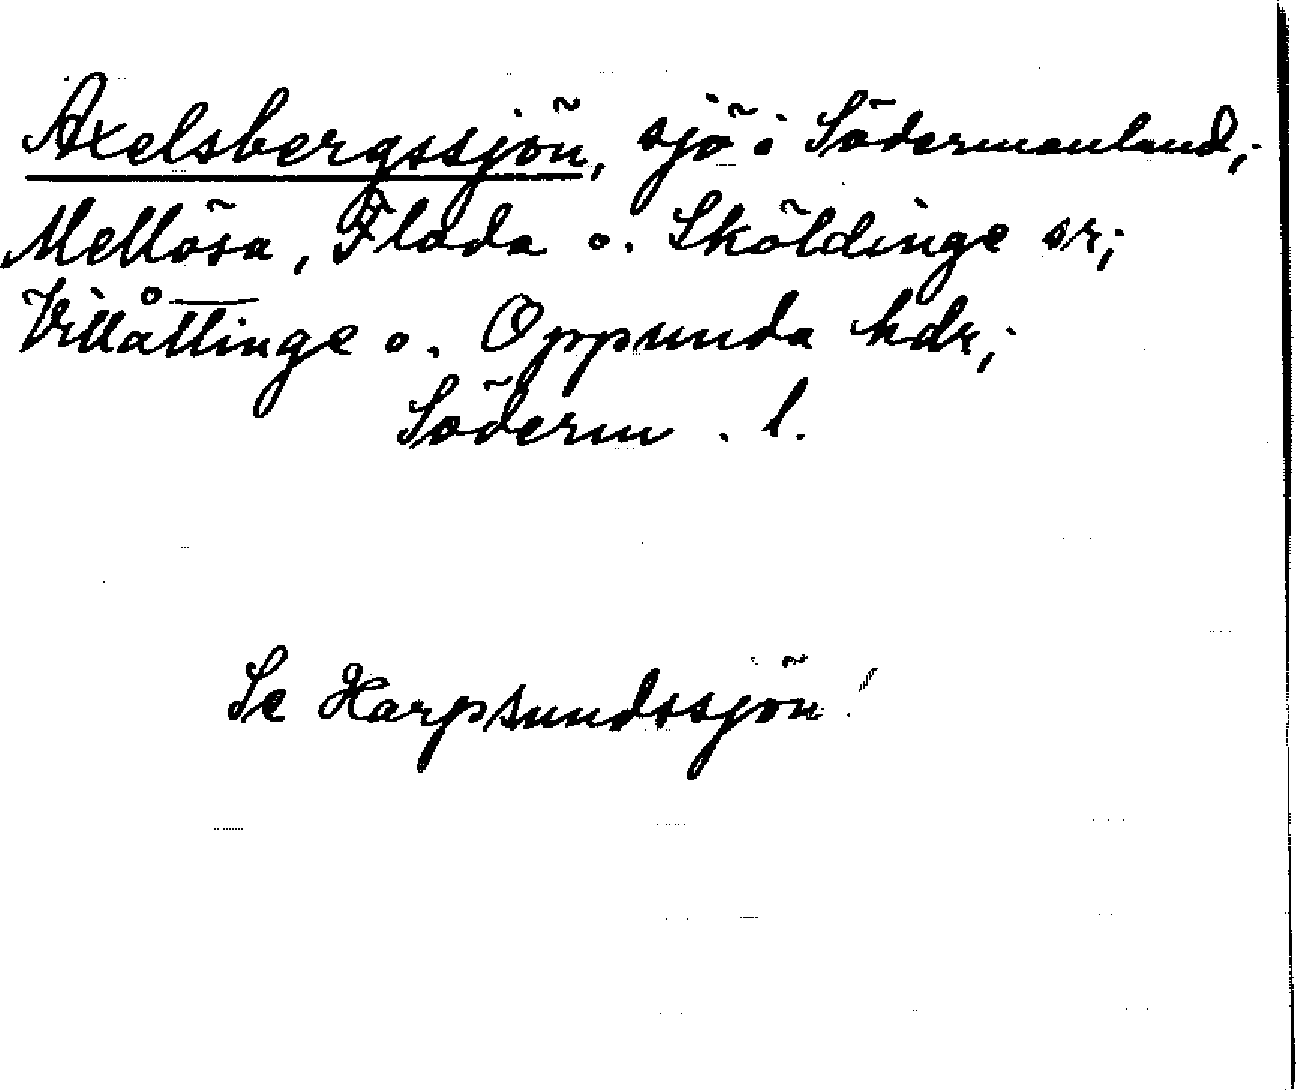 Axelsbergssjön, sjö i Södermanland,
Mellösa, Floda o. Sköldinge sr;
Villåttinge o. Oppunda hdr;
Söderm. l.
Se Harpsundssjön!